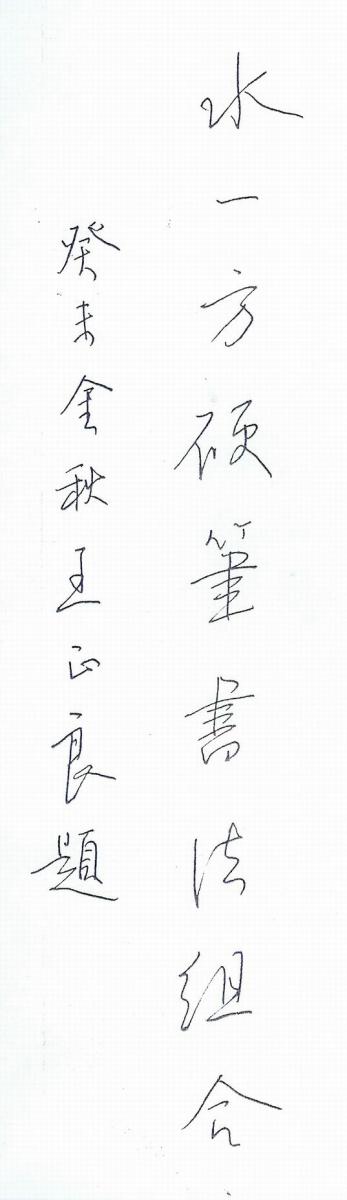 水一方硬筆書法組合
癸未金秋王正良題